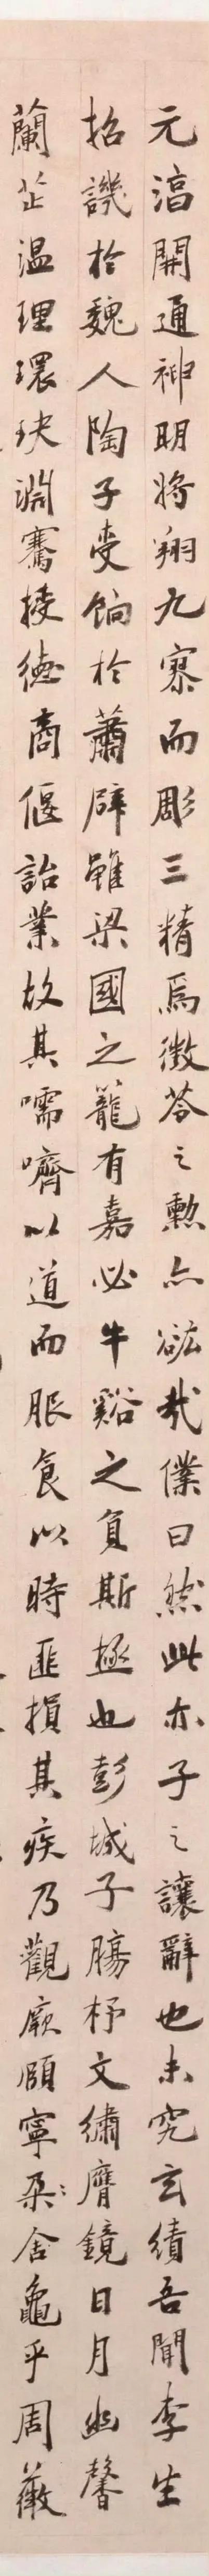 元滈開通神明將翔九寥而彫三精焉徵苓之勲亦谹哉僕曰然此亦子之讓辭也未究玄績吾聞李生
招譏於魏人陶子受餉於蕭辟雖梁國之籠有嘉必牛谿之負斯極也彭城子腸杼文繡膺鏡日月幽馨
蘭芷溫理環玦淵騫掞德商偃詒業故其嚅嚌以道而服食以時匪損其疾乃觀厥頤寧朶朶舍龜乎周薇